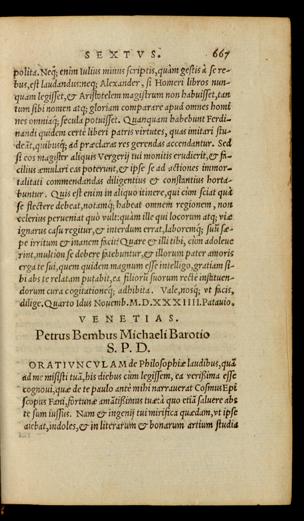 SEXTVS. 667
polita. Neq; enim Iulius minus scriptis, quàm gestis à se re-
bus, est laudandus: neq; Alexander, si Homeri libros nun-
quam legisset, & Aristotelem magistrum non habuisset, tan
tum sibi nomen atq; gloriam comparare apud omnes homi
nes omniaq; secula potuisset. Quanquam habebunt Ferdi-
nandi quidem certè liberi patris virtutes, quas imitari stu-
deāt, quibusq; ad præclaras res gerendas accendantur. Sed
si eos magister aliquis Vergerij tui monitis erudierit, & fa-
cilius æmulari eas poterunt, & ipse se ad actiones immor-
talitati commendandas diligentius & constantius horta-
buntur. Quis est enim in aliquo itinere, qui cùm sciat quà
se flectere debeat, notamq; habeat omnem regionem, non
celerius perueniat quò vult: quàm ille qui locorum atq; viæ
ignarus casu regitur, & interdum errat, laboremq; suū sæ-
pe irritum & inanem facit? Quare & illi tibi, cùm adoleue
rint, multùm se debere fatebuntur, & illorum pater amoris
erga te sui, quem quidem magnum esse intelligo, gratiam si-
bi abs te relatam putabit, ea filiorū suorum rectè instituen-
dorum cura cogitationeq; adhibita. Vale, nosq; vt facis,
dilige. Quarto Idus Nouemb. M.D.XXXIIII. Patauio.
VENETIAS.
Petrus Bembus Michaeli Barotio
S. P. D.
ORATIVNCVLAM de Philosophiæ laudibus, quā
ad me misisti tuā, his diebus cùm legissem, ea verißima esse
cognoui, quæ de te paulo antè mihi narrauerat Cosmus Epi
scopus Fani, fortunæ amātißimus tuæ: à quo etiā saluere abs
te sum iussus. Nam & ingenij tui mirifica quædam, vt ipse
aiebat, indoles, & in literarum & bonarum artium studia